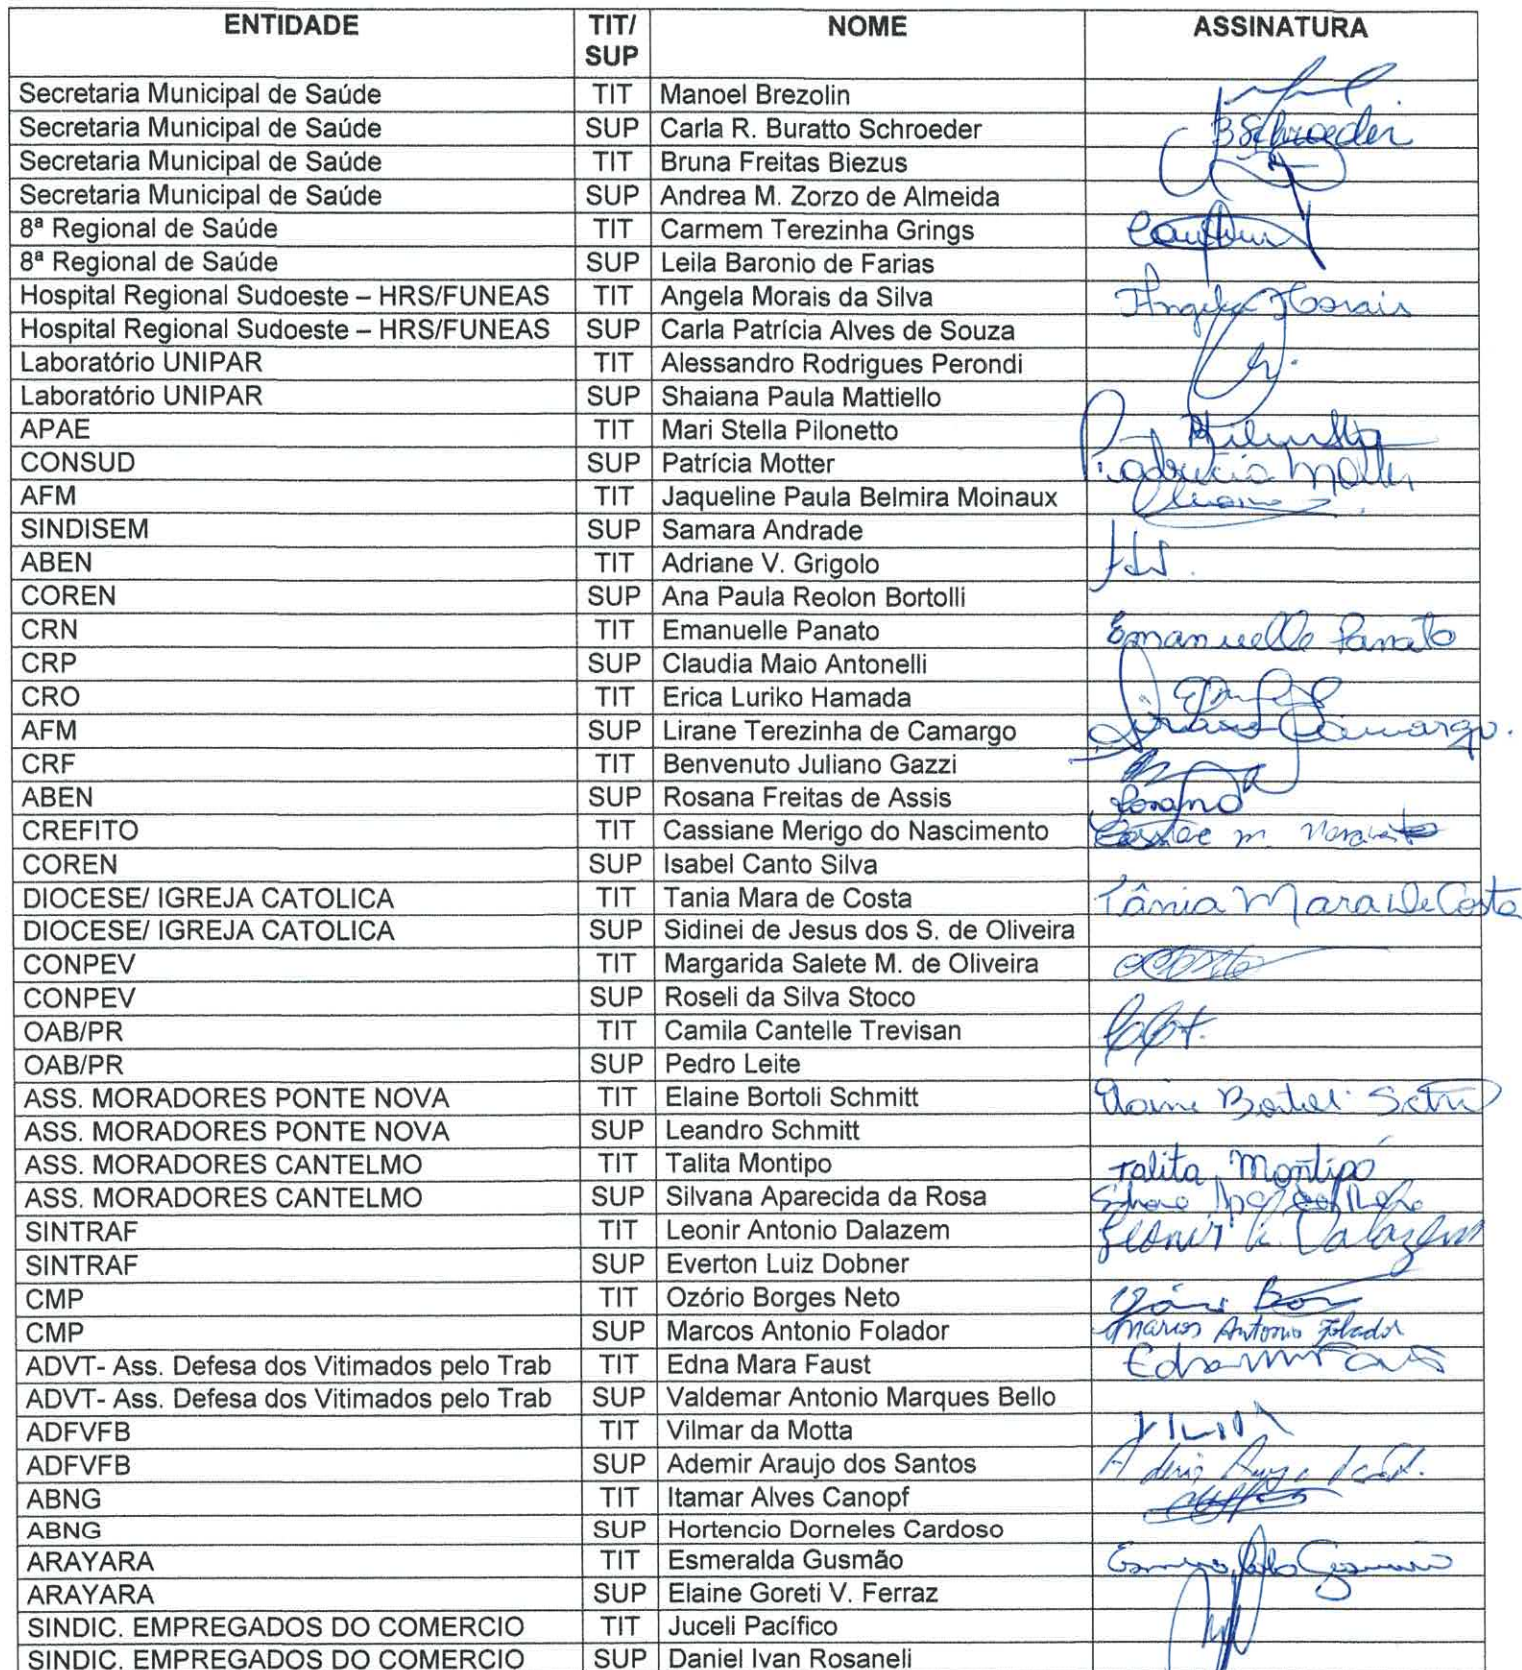 ENTIDADE TIT/ SUP NOME ASSINATURA
Secretaria Municipal de Saúde TIT Manoel Brezolin
Secretaria Municipal de Saúde SUP Carla R. Buratto Schroeder BSchroeder
Secretaria Municipal de Saúde TIT Bruna Freitas Biezus
Secretaria Municipal de Saúde SUP Andrea M. Zorzo de Almeida
8ª Regional de Saúde TIT Carmem Terezinha Grings
8ª Regional de Saúde SUP Leila Baronio de Farias
Hospital Regional Sudoeste – HRS/FUNEAS TIT Angela Morais da Silva Angela Morais
Hospital Regional Sudoeste – HRS/FUNEAS SUP Carla Patrícia Alves de Souza
Laboratório UNIPAR TIT Alessandro Rodrigues Perondi
Laboratório UNIPAR SUP Shaiana Paula Mattiello
APAE TIT Mari Stella Pilonetto
CONSUD SUP Patrícia Motter Patrícia Motter
AFM TIT Jaqueline Paula Belmira Moinaux
SINDISEM SUP Samara Andrade
ABEN TIT Adriane V. Grigolo
COREN SUP Ana Paula Reolon Bortolli
CRN TIT Emanuelle Panato Emanuelle Panato
CRP SUP Claudia Maio Antonelli
CRO TIT Erica Luriko Hamada
AFM SUP Lirane Terezinha de Camargo Lirane Camargo.
CRF TIT Benvenuto Juliano Gazzi
ABEN SUP Rosana Freitas de Assis Rosana
CREFITO TIT Cassiane Merigo do Nascimento
COREN SUP Isabel Canto Silva
DIOCESE/ IGREJA CATOLICA TIT Tania Mara de Costa Tânia Mara De Costa
DIOCESE/ IGREJA CATOLICA SUP Sidinei de Jesus dos S. de Oliveira
CONPEV TIT Margarida Salete M. de Oliveira
CONPEV SUP Roseli da Silva Stoco
OAB/PR TIT Camila Cantelle Trevisan
OAB/PR SUP Pedro Leite
ASS. MORADORES PONTE NOVA TIT Elaine Bortoli Schmitt
ASS. MORADORES PONTE NOVA SUP Leandro Schmitt
ASS. MORADORES CANTELMO TIT Talita Montipo Talita Montipó
ASS. MORADORES CANTELMO SUP Silvana Aparecida da Rosa
SINTRAF TIT Leonir Antonio Dalazem Leonir A. Dalazem
SINTRAF SUP Everton Luiz Dobner
CMP TIT Ozório Borges Neto
CMP SUP Marcos Antonio Folador Marcos Antonio Folador
ADVT- Ass. Defesa dos Vitimados pelo Trab TIT Edna Mara Faust
ADVT- Ass. Defesa dos Vitimados pelo Trab SUP Valdemar Antonio Marques Bello
ADFVFB TIT Vilmar da Motta
ADFVFB SUP Ademir Araujo dos Santos
ABNG TIT Itamar Alves Canopf
ABNG SUP Hortencio Dorneles Cardoso
ARAYARA TIT Esmeralda Gusmão
ARAYARA SUP Elaine Goreti V. Ferraz
SINDIC. EMPREGADOS DO COMERCIO TIT Juceli Pacífico
SINDIC. EMPREGADOS DO COMERCIO SUP Daniel Ivan Rosaneli